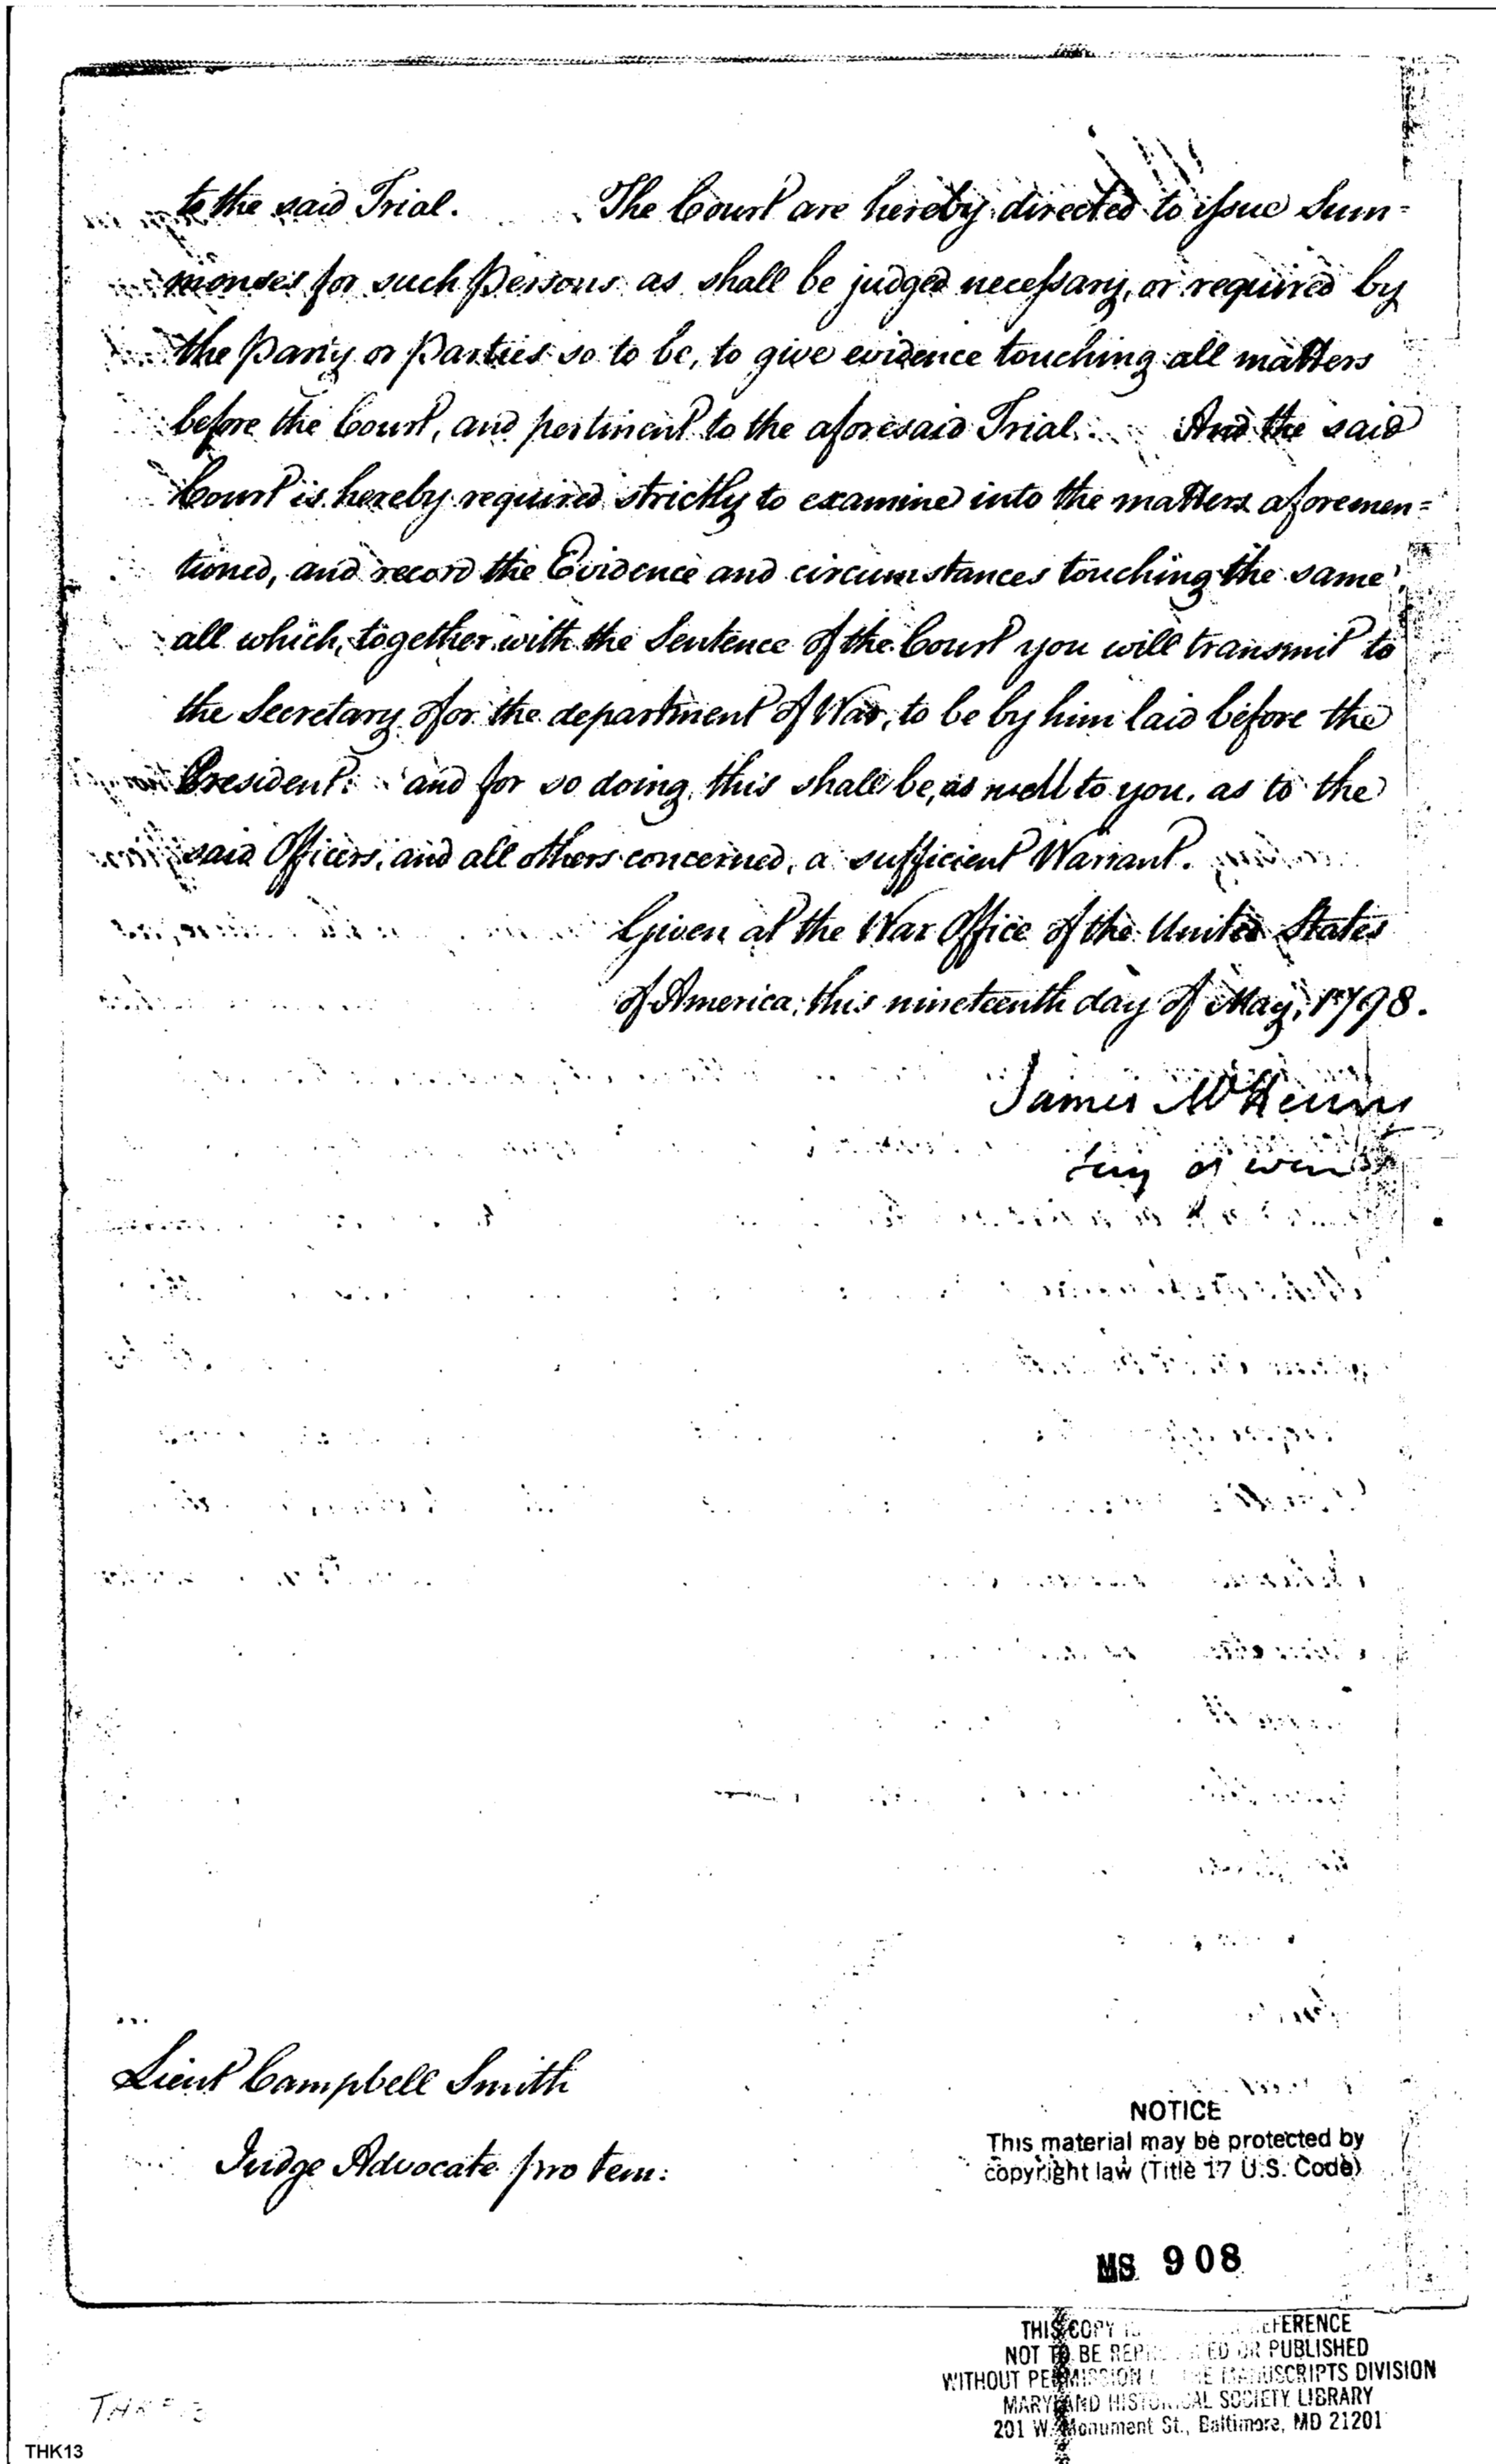 to the said Trial. The Court are hereby directed to issue Sum=
monses for such Persons as shall be judged necessary, or required by
the Party or Parties so to be, to give evidence touching all matters
before the Court, and pertinent to the aforesaid Trial. And the said
Court is hereby required strictly to examine into the matters aforemen=
tioned, and record the Evidence and circumstances touching the same,
all which, together with the Sentence of the Court you will transmit to
the Secretary of for the department of War, to be by him laid before the
President: and for so doing, this shall be, as well to you, as to the
said Officers, and all others concerned, a sufficient Warrant.
Given at the War Office of the United States
of America, this nineteenth day of May, 1798.
James McHenry
of war
Lieut Campbell Smith
Judge Advocate pro tem:
NOTICE
This material may be protected by
copyright law (Title 17 U.S. Code)
MS 908
THIS COPY IS REFERENCE
NOT TO BE REPRODUCED OR PUBLISHED
WITHOUT PERMISSION OF THE MANUSCRIPTS DIVISION
MARYLAND HISTORICAL SOCIETY LIBRARY
201 W. Monument St., Baltimore, MD 21201
THK13